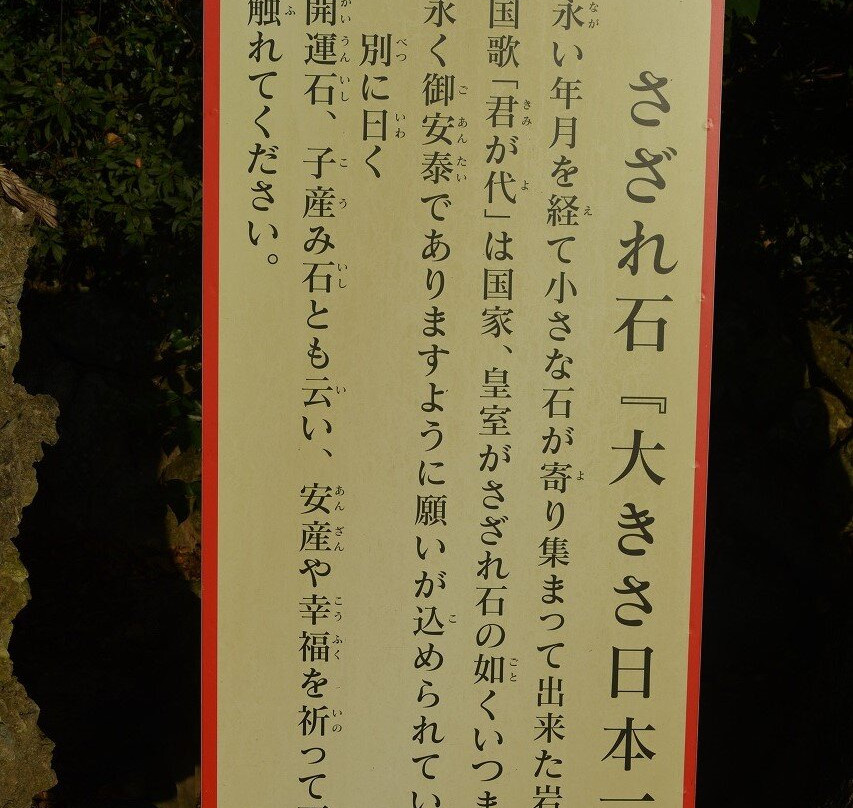 さざれ石『大きさ日本一
永い年月を経て小さな石が寄り集まって出来た岩
国歌「君が代」は国家、皇室がさざれ石の如くいつま
永く御安泰でありますように願いが込められてい
別に曰く
開運石、子産み石とも云い、安産や幸福を祈って
触れてください。